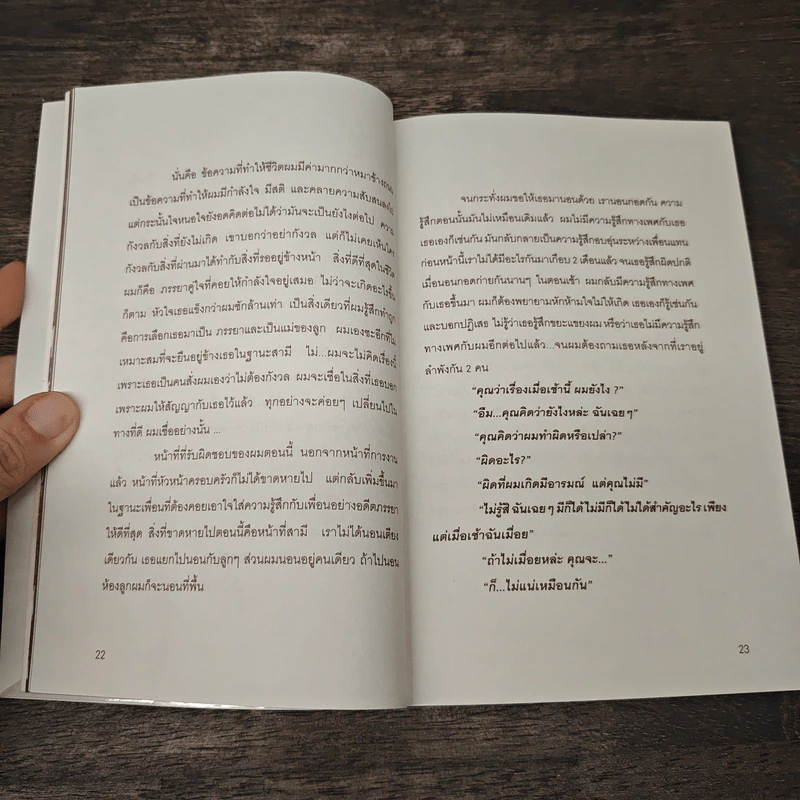 นั่นคือ ข้อความที่ทำให้ชีวิตผมมีค่ามากกว่าหมาข้างถนน
เป็นข้อความที่ทำให้ผมมีกำลังใจ มีสติ และคลายความสับสนลงไป
แต่กระนั้นใจหนอใจยังอดคิดต่อไม่ได้ว่ามันจะเป็นยังไงต่อไป ความ
กังวลกับสิ่งที่ยังไม่เกิด เขาบอกว่าอย่ากังวล แต่ก็ไม่เคยเห็นใคร
กังวลกับสิ่งที่ผ่านมาได้ทำกับสิ่งที่รออยู่ข้างหน้า สิ่งที่ดีที่สุดในชีวิต
ผมก็คือ ภรรยาคู่ใจที่คอยให้กำลังใจอยู่เสมอ ไม่ว่าจะเกิดอะไรขึ้น
ก็ตาม หัวใจเธอแข็งกว่าผมซักล้านเท่า เป็นสิ่งเดียวที่ผมรู้สึกทำถูก
คือการเลือกเธอมาเป็น ภรรยาและเป็นแม่ของลูก ผมเองซะอีกที่ไม่
เหมาะสมที่จะยืนอยู่ข้างเธอในฐานะสามี ไม่...ผมจะไม่คิดเรื่องนี้
เพราะเธอเป็นคนสั่งผมเองว่าไม่ต้องกังวล ผมจะเชื่อในสิ่งที่เธอบอก
เพราะผมให้สัญญากับเธอไว้แล้ว ทุกอย่างจะค่อยๆ เปลี่ยนไปใน
ทางที่ดี ผมเชื่ออย่างนั้น ...
หน้าที่ที่รับผิดชอบของผมตอนนี้ นอกจากหน้าที่การงาน
แล้ว หน้าที่หัวหน้าครอบครัวก็ไม่ได้ขาดหายไป แต่กลับเพิ่มขึ้นมา
ในฐานะเพื่อนที่ต้องคอยเอาใจใส่ความรู้สึกกับเพื่อนอย่างอดีตภรรยา
ให้ดีที่สุด สิ่งที่ขาดหายไปตอนนี้คือหน้าที่สามี เราไม่ได้นอนเตียง
เดียวกัน เธอแยกไปนอนกับลูกๆ ส่วนผมนอนอยู่คนเดียว ถ้าไปนอน
ห้องลูกผมก็จะนอนที่พื้น
22
จนกระทั่งผมขอให้เธอมานอนด้วย เรานอนกอดกัน ความ
รู้สึกตอนนั้นมันไม่เหมือนเดิมแล้ว ผมไม่มีความรู้สึกทางเพศกับเธอ
เธอเองก็เช่นกัน มันกลับกลายเป็นความรู้สึกอบอุ่นระหว่างเพื่อนแทน
ก่อนหน้านี้เราไม่ได้มีอะไรกันมาเกือบ 2 เดือนแล้ว จนเธอรู้สึกผิดปกติ
เมื่อนอนกอดก่ายกันนานๆ ในตอนเช้า ผมกลับมีความรู้สึกทางเพศ
กับเธอขึ้นมา ผมก็ต้องพยายามหักห้ามใจไม่ให้เกิด เธอเองก็รู้เช่นกัน
และบอกปฏิเสธ ไม่รู้ว่าเธอรู้สึกขยะแขยงผม หรือว่าเธอไม่มีความรู้สึก
ทางเพศกับผมอีกต่อไปแล้ว...จนผมต้องถามเธอหลังจากที่เราอยู่
ลำพังกัน 2 คน
“คุณว่าเรื่องเมื่อเช้านี้ ผมยังไง ?”
“อืม...คุณคิดว่ายังไงหล่ะ ฉันเฉยๆ”
“คุณคิดว่าผมทำผิดหรือเปล่า?”
“ผิดอะไร?”
“ผิดที่ผมเกิดมีอารมณ์ แต่คุณไม่มี”
“ไม่รู้สิ ฉันเฉยๆ มีก็ได้ไม่มีก็ได้ไม่ได้สำคัญอะไร เพียง
แต่เมื่อเช้าฉันเมื่อย”
“ถ้าไม่เมื่อยหล่ะ คุณจะ...”
“ก็...ไม่แน่เหมือนกัน”
23